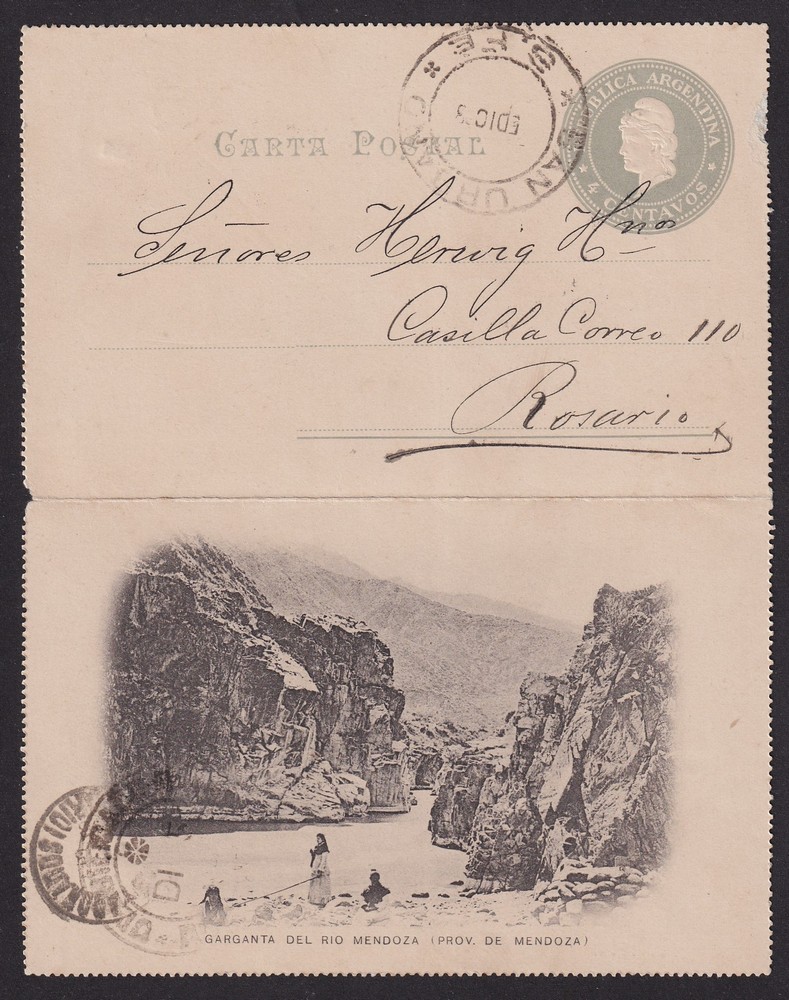 S. FE
SAN URBANO
EDIC 3
REPÚBLICA ARGENTINA
4 CENTAVOS
CARTA POSTAL
Señores Herwig Hnos
Casilla Correo 110
Rosario
GARGANTA DEL RIO MENDOZA (PROV. DE MENDOZA)